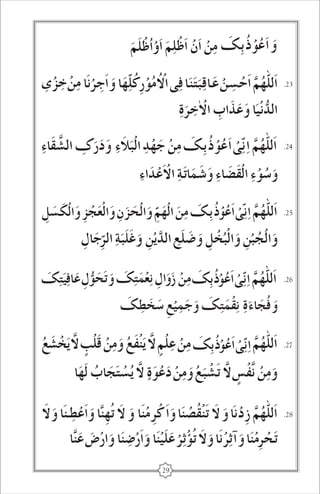 وَ اَعُوْذُ بِكَ مِنْ اَنْ اَظْلِمَ اَوْ اُظْلَمَ
23. اَللّٰهُمَّ اَحْسِنْ عَاقِبَتَنَا فِى الْاُمُوْرِ كُلِّهَا وَاَجِرْنَا مِنْ خِزْيِ
الدُّنْيَا وَعَذَابِ الْاٰخِرَةِ
24. اَللّٰهُمَّ اِنِّىْ اَعُوْذُ بِكَ مِنْ جَهْدِ الْبَلَاءِ وَدَرَكِ الشَّقَاءِ
وَسُوْءِ الْقَضَاءِ وَشَمَاتَةِ الْاَعْدَاءِ
25. اَللّٰهُمَّ اِنِّىْ اَعُوْذُ بِكَ مِنَ الْهَمِّ وَالْحَزَنِ وَالْعَجْزِ وَالْكَسَلِ
وَالْجُبْنِ وَالْبُخْلِ وَضَلَعِ الدَّيْنِ وَغَلَبَةِ الرِّجَالِ
26. اَللّٰهُمَّ اِنِّىْ اَعُوْذُ بِكَ مِنْ زَوَالِ نِعْمَتِكَ وَتَحَوُّلِ عَافِيَتِكَ
وَفُجَاءَةِ نِقْمَتِكَ وَجَمِيْعِ سَخَطِكَ
27. اَللّٰهُمَّ اِنِّىْ اَعُوْذُ بِكَ مِنْ عِلْمٍ لَّا يَنْفَعُ وَمِنْ قَلْبٍ لَّا يَخْشَعُ
وَمِنْ نَّفْسٍ لَّا تَشْبَعُ وَمِنْ دَعْوَةٍ لَّا يُسْتَجَابُ لَهَا
28. اَللّٰهُمَّ زِدْنَا وَ لَا تَنْقُصْنَا وَاَكْرِمْنَا وَ لَا تُهِنَّا وَاَعْطِنَا وَلَا
تَحْرِمْنَا وَاٰثِرْنَا وَلَا تُؤْثِرْ عَلَيْنَا وَاَرْضِنَا وَارْضَ عَنَّا
29